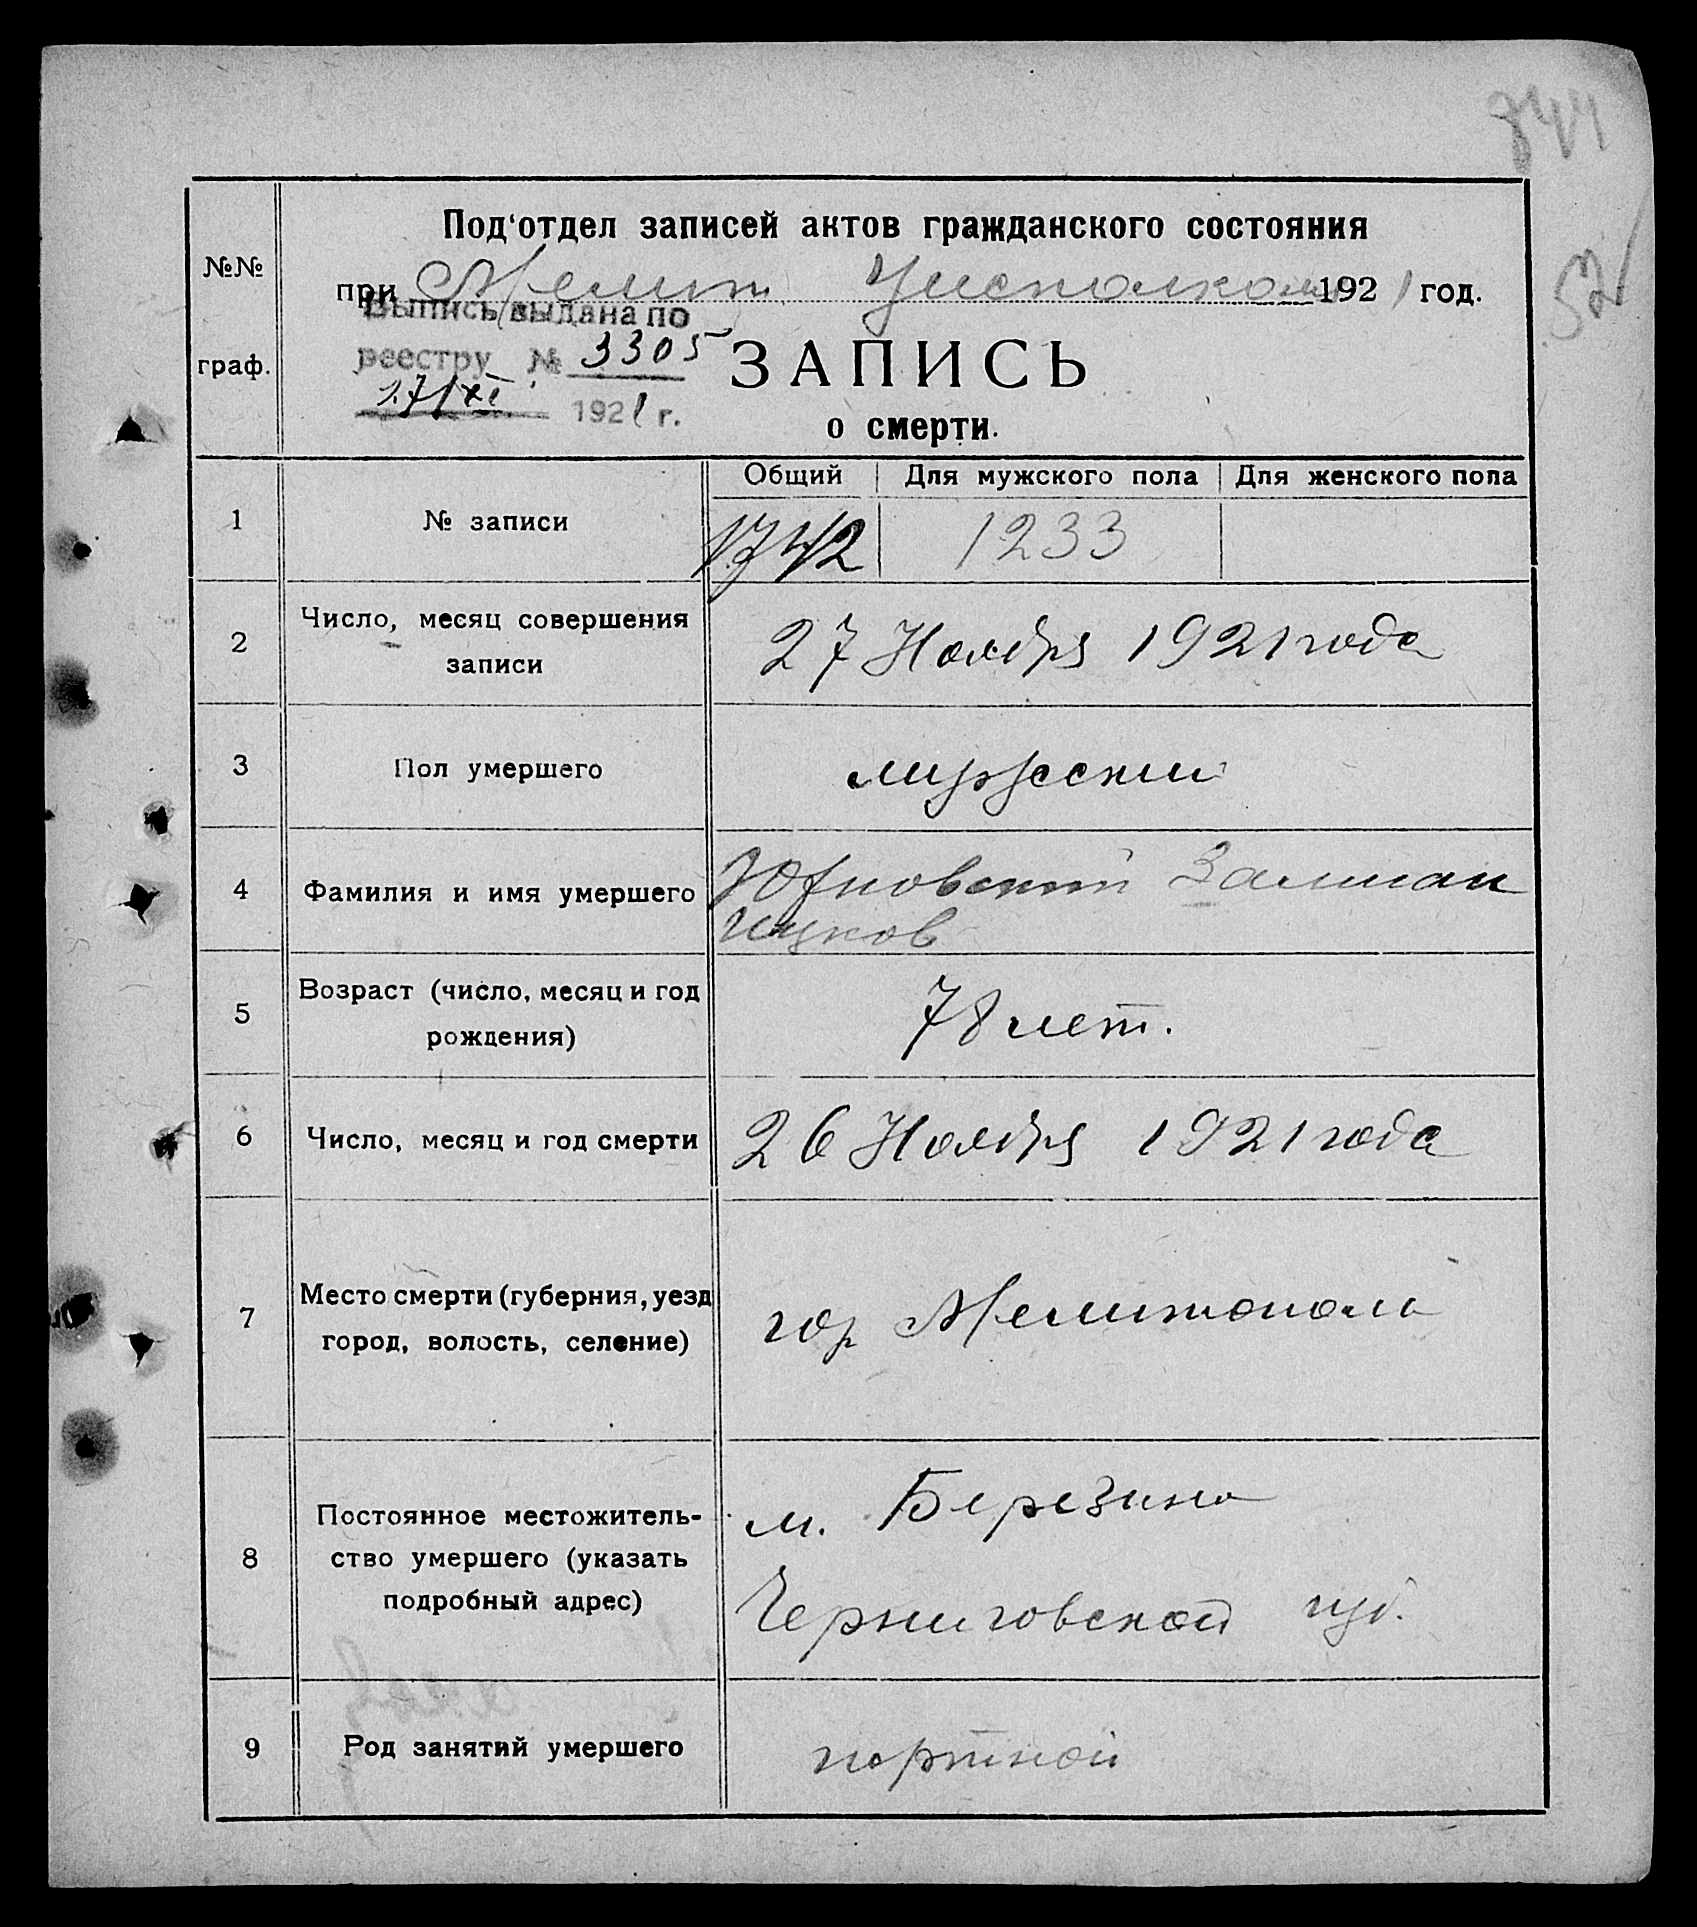 844
52
№№
граф.
Под'отдел записей актов гражданского состояния
при Мелит Уисполкоме 1921 год.
Выпись выдана по
реестру № 3305
27/XI 1921 г.
ЗАПИСЬ
о смерти.
Общий Для мужского пола Для женского пола
1 № записи 1742 1233
2 Число, месяц совершения
записи
27 Ноября 1921 года
3 Пол умершего мужской
4 Фамилия и имя умершего Залман
Ицков
5 Возраст (число, месяц и год
рождения)
78 лет.
6 Число, месяц и год смерти 26 Ноября 1921 года
7 Место смерти (губерния, уезд
город, волость, селение)
гор Мелитополь
8 Постоянное местожитель-
ство умершего (указать
подробный адрес)
м. Березина
Черниговской губ.
9 Род занятий умершего портной